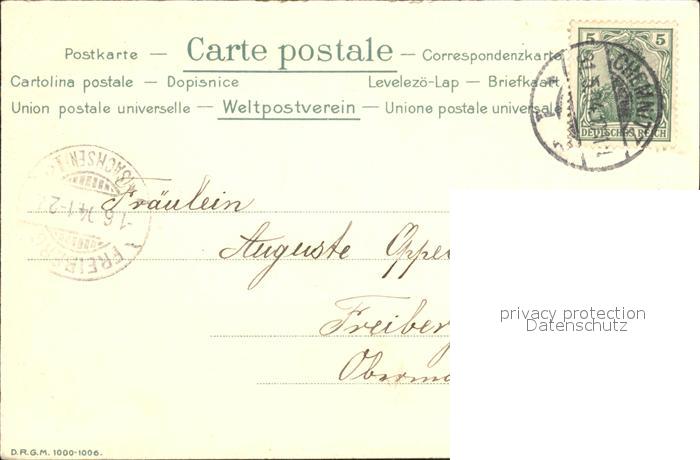 Postkarte — Carte postale — Correspondenzkarte
Cartolina postale — Dopisnice Levelezö-Lap — Briefkaart
Union postale universelle — Weltpostverein — Unione postale universale
5 5
DEUTSCHES REICH
CHEMNITZ
SACHSEN
1.6.04.1-2
FREIBERG
Fräulein
Auguste Oppe
Freiber
Oberma
privacy protection
Datenschutz
D.R.G.M. 1000-1006.